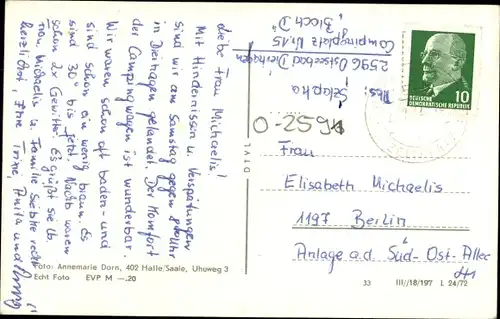 Liebe Frau Michaelis!
Mit Hindernissen u. Verspätungen
sind wir am Samstag gegen 8 Uhr
in Dierhagen gelandet. Der Komfort
der Campingwagen ist wunderbar.
Wir waren schon oft baden - und
sind schon ein wenig braun. Es
sind 30° bis jetzt. Nachts waren
schon 2x Gewitter. Es grüßt Sie lb.
Frau Michaelis u. Familie Siebke recht
herzlichst, Ihre Trine, Anita und
Abs: Szlapka
2596 Ostseebad Dierhagen
Campingplatz Nr. 15
"Block D"
DEUTSCHE
DEMOKRATISCHE REPUBLIK
10
O-2591
Frau
Elisabeth Michaelis
1197 Berlin
Anlage a.d. Süd-Ost-Allee
Foto: Annemarie Dorn, 402 Halle/Saale, Uhuweg 3
Echt Foto EVP M —.20
33 III//18/197 L 24/72